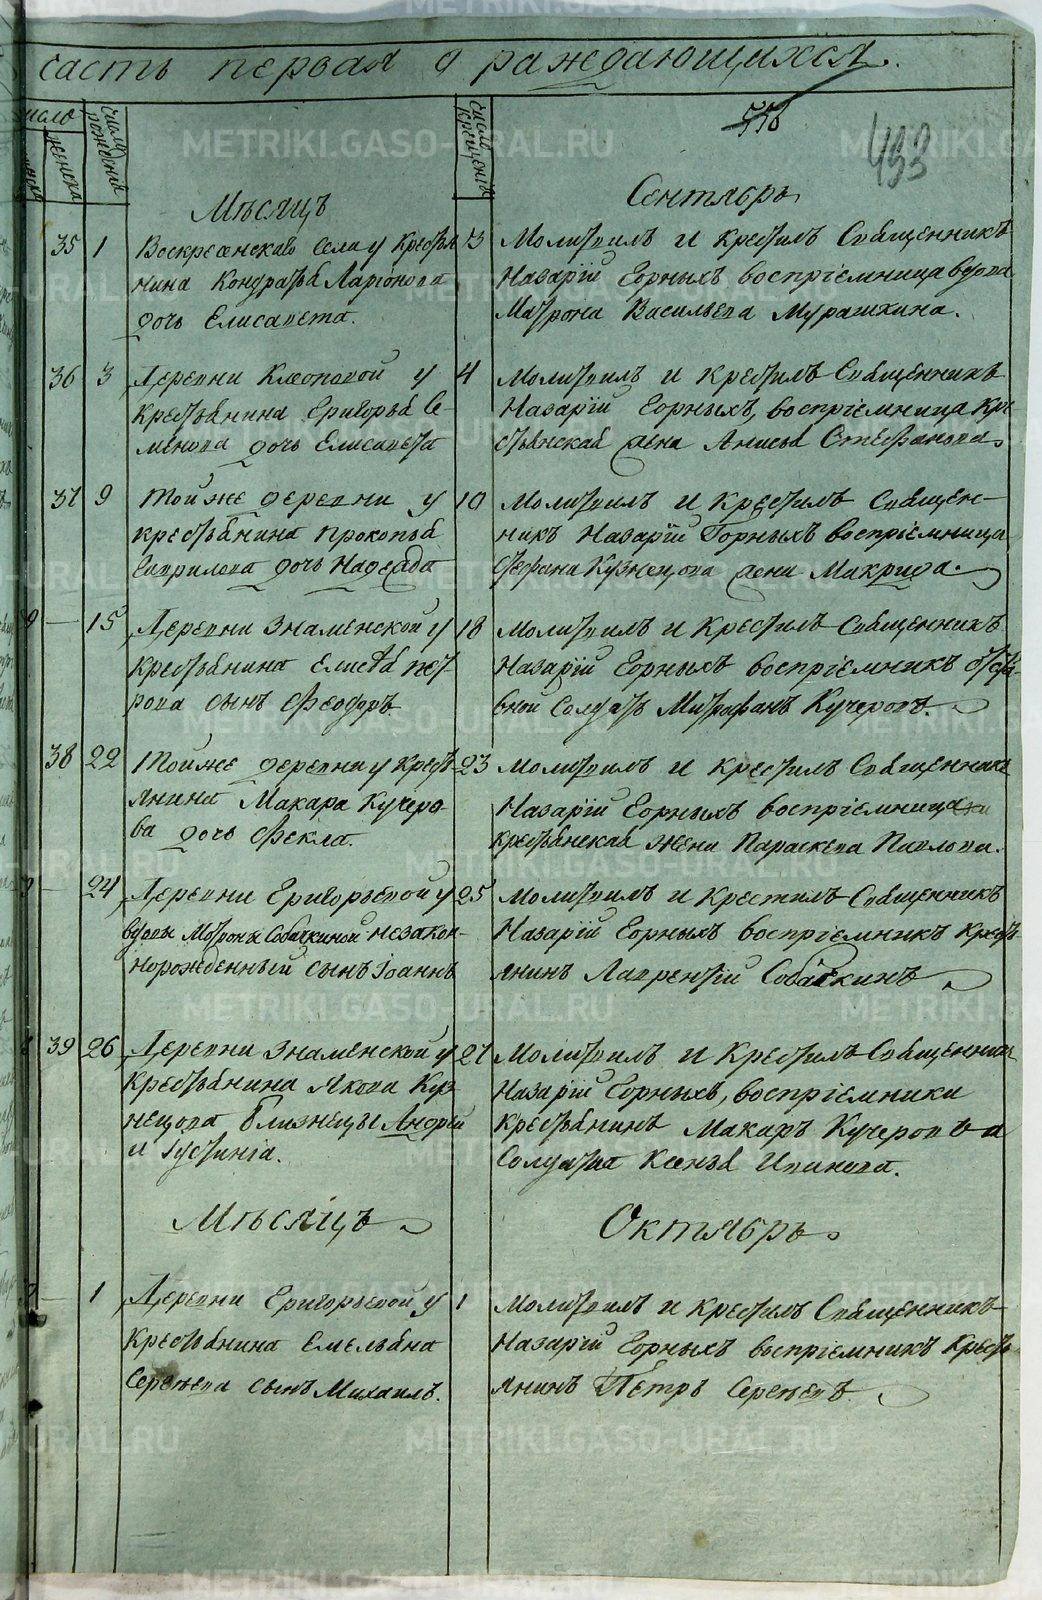 часть первая о раждающихся.
число
женска
число рождения
число крещения
556
493
Мѣсяцъ
Сентябрь
35
1
Воскресенскаго Села у Крестья
нина Кондратья Ларіонова
дочь Елисавета.
3
Молитвилъ и Крестилъ Священникъ
Назарій Горныхъ воспріемница вдова
Матрона Васильева Мурашкина.
36
3
Деревни Клеоповой у
Крестьянина Григорья Се-
менова дочь Елисавета
4
Молитвилъ и Крестилъ Священникъ
Назарій Горныхъ, воспріемница Кре
стьянская жена Анисья Стефанова.
37
9
Той же деревни у
крестьянина Прокопья
Гаврилова дочь Надежда
10
Молитвилъ и Крестилъ Священ-
никъ Назарій Горныхъ воспріемница
Кузнецова жена Макрида.
15
Деревни Знаменской у
Крестьянина Елисея Пет
рова сынъ Феодоръ
18
Молитвилъ и Крестилъ Священникъ
Назарій Горныхъ воспріемникъ отста-
вной Солдатъ Митрофанъ Кучеровъ.
38
22
Той же деревни у Кресть
янина Макара Кучеро
ва дочь Фекла.
23
Молитвилъ и крестилъ Священникъ
Назарій Горныхъ воспріемница
Крестьянская жена Параскева Павлова.
24
Деревни Григорьевой у
вдовы Матроны Собачкиной незакон-
норожденный сынъ Іоаннъ
25
Молитвилъ и Крестилъ Священникъ
Назарій Горныхъ воспріемникъ Кресть
янинъ Лаврентій Собачкинъ
39
26
Деревни Знаменской у
Крестьянина Якова Куз
нецова близнецы Андрей
и Іустинія.
27
Молитвилъ и Крестилъ Священник
Назарій Горныхъ, воспріемники
Крестьянинъ Макаръ Кучеровъ и
Солдатка Ксенья Иванова.
Мѣсяцъ
Октябрь
1
Деревни Григорьевой у
Крестьянина Емельяна
сынъ Михаилъ.
1
Молитвилъ и Крестилъ Священникъ
Назарій Горныхъ воспріемникъ Кресть
янинъ Петръ